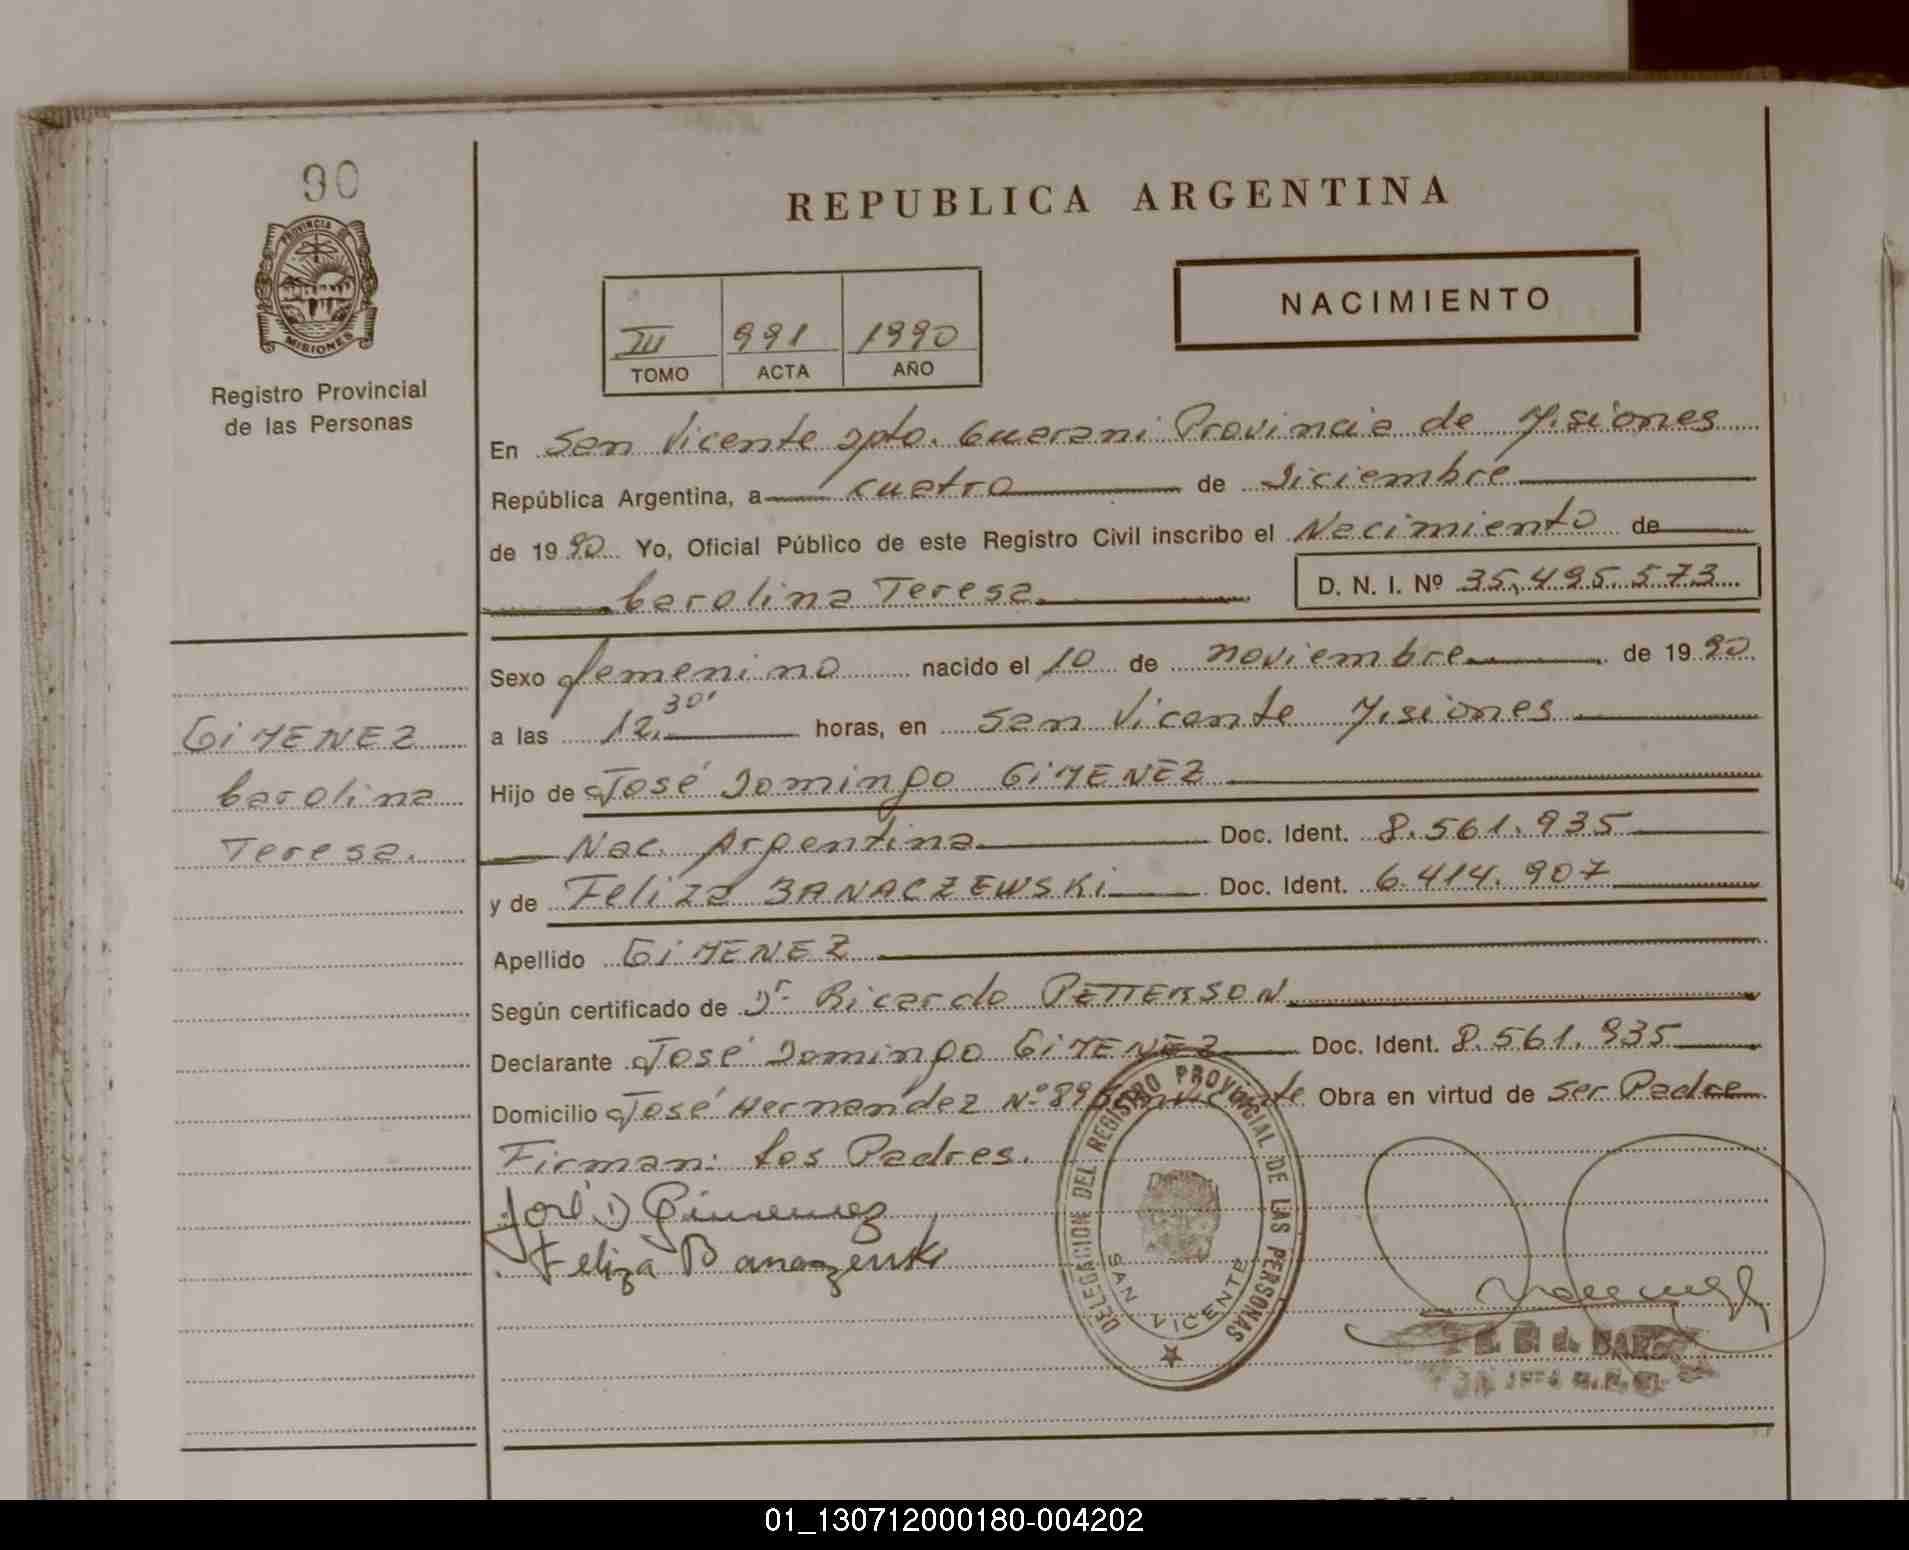 90
PROVINCIA DE
MISIONES
Registro Provincial
de las Personas
REPUBLICA ARGENTINA
NACIMIENTO
III 991 1990
TOMO ACTA AÑO
En San Vicente Dpto. Guarani Provincia de Misiones
República Argentina, a cuatro de Diciembre
de 1990 Yo, Oficial Público de este Registro Civil inscribo el Nacimiento de
Carolina Teresa D. N. I. Nº 35.495.573
Sexo femenino nacido el 10 de noviembre de 1990
a las 12.30' horas, en San Vicente Misiones
Hijo de José Domingo GIMENEZ
Nac. Argentina Doc. Ident. 8.561.935
y de Feliza BANACZEWSKI Doc. Ident. 6.414.907
Apellido GIMENEZ
Según certificado de Dr. Ricardo PETTERSON
Declarante José Domingo GIMENEZ Doc. Ident. 8.561.935
Domicilio José Hernandez Nº 895 San Vicente Obra en virtud de ser Padre
Firman: Los Padres.
José D Gimenez
Feliza Banaczenski
GIMENEZ
Carolina
Teresa.
DELEGACION DEL REGISTRO PROVINCIAL DE LAS PERSONAS
SAN VICENTE
01_130712000180-004202